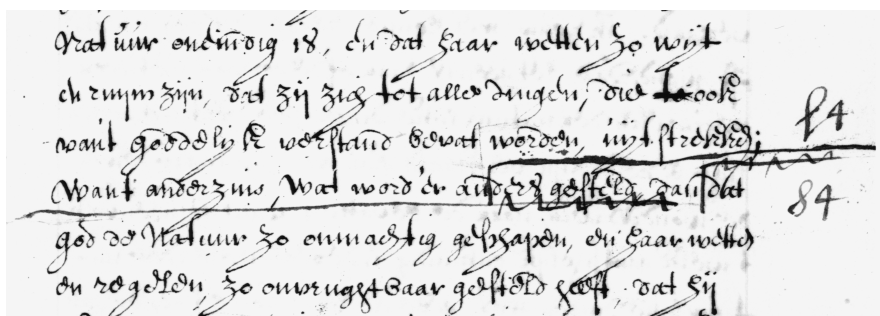 Natuur oneindig is, en dat haar wetten zo wijt
en ruim zijn, dat zij zich tot alle dingen, die ook
van't goddelijk verstand bevat worden, uijtstrekken;
Want anderzins, wat word'er anders gesteld, dan dat
god de Natuur zo onmachtig geschapen, en haar wetten
en regelen zo onvruchtbaar gesteld heeft, dat hij
84
84